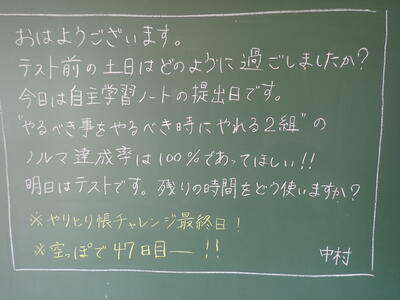 おはようございます。
テスト前の土日はどのように過ごしましたか?
今日は自主学習ノートの提出日です。
"やるべき事をやるべき時にやれる2組"の
ノルマ達成率は100%であってほしい!!
明日はテストです。残りの時間をどう使いますか?
※やりとり帳チャレンジ最終日!
※空っぽで47日目―!!
中村